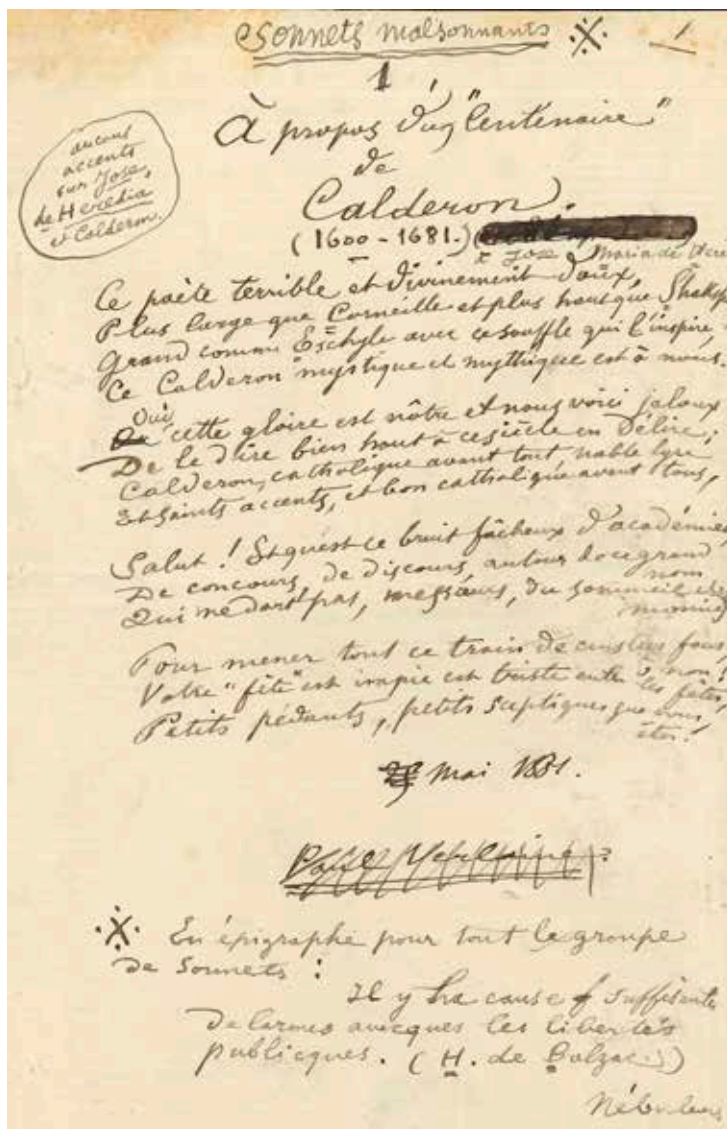 Sonnets malsonnants 1
1
À propos d'un "Centenaire"
de
Calderon.
(1600-1681.)
à José Maria de Here
aucuns
accents
sur Jose,
de Heredia
et Calderon.
Ce poète terrible et divinement doux,
Plus large que Corneille et plus haut que Shaksp
Grand comme Eschyle avec ce souffle qui l'inspire,
Ce Calderon mystique et mythique est à nous.
Oui cette gloire est nôtre et nous voici jaloux
De le dire bien haut à ce siècle en délire;
Calderon, catholique avant tout noble lyre
Et saints accents, et bon catholique avant tous,
Salut! Et qu'est ce bruit fâcheux d'académies,
De concours, de discours, autour de ce grand
nom
Qui me dort pas, messieurs, du sommeil
Pour mener tout ce train de cuistres fous,
non!
Votre "fête" est impie est triste entre les fêtes,
Petits pédants, petits sceptiques que vous
êtes!
25 mai 1881.
Paul Verlaine
En épigraphe pour tout le groupe
de Sonnets:
Il y ha cause suffisante
de larmes avecques les libertés
publicques. (H. de Balzac.)